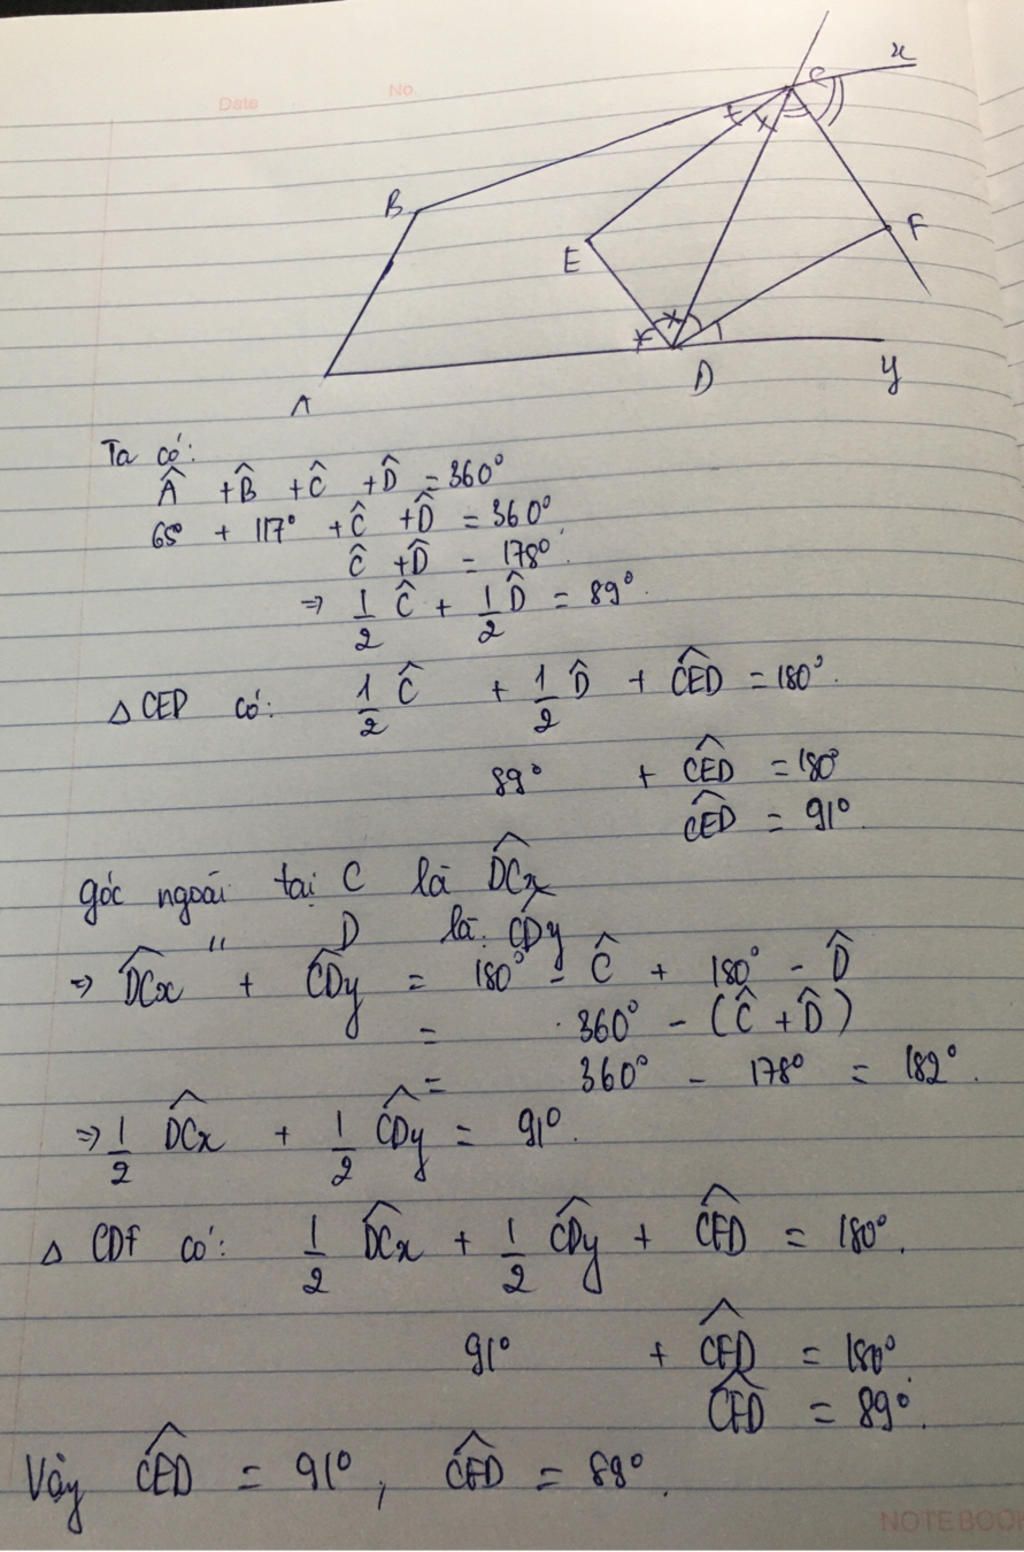 Date
No.
x
C
B
F
E
A
D
y
Ta có:
Â + B̂ + Ĉ + D̂ = 360°
65° + 117° + Ĉ + D̂ = 360°
Ĉ + D̂ = 178°.
⇒ 1/2 Ĉ + 1/2 D̂ = 89°.
△ CED có: 1/2 Ĉ + 1/2 D̂ + CÊD = 180°.
89° + CÊD = 180°
CÊD = 91°.
góc ngoài tại C là DĈx
" D là: CD̂y
⇒ DĈx + CD̂y = 180° - Ĉ + 180° - D̂
= 360° - (Ĉ + D̂)
= 360° - 178° = 182°.
⇒ 1/2 DĈx + 1/2 CD̂y = 91°.
△ CDF có: 1/2 DĈx + 1/2 CD̂y + CF̂D = 180°.
91° + CF̂D = 180°.
CF̂D = 89°.
Vậy CÊD = 91°, CF̂D = 89°.
NOTEBOOK